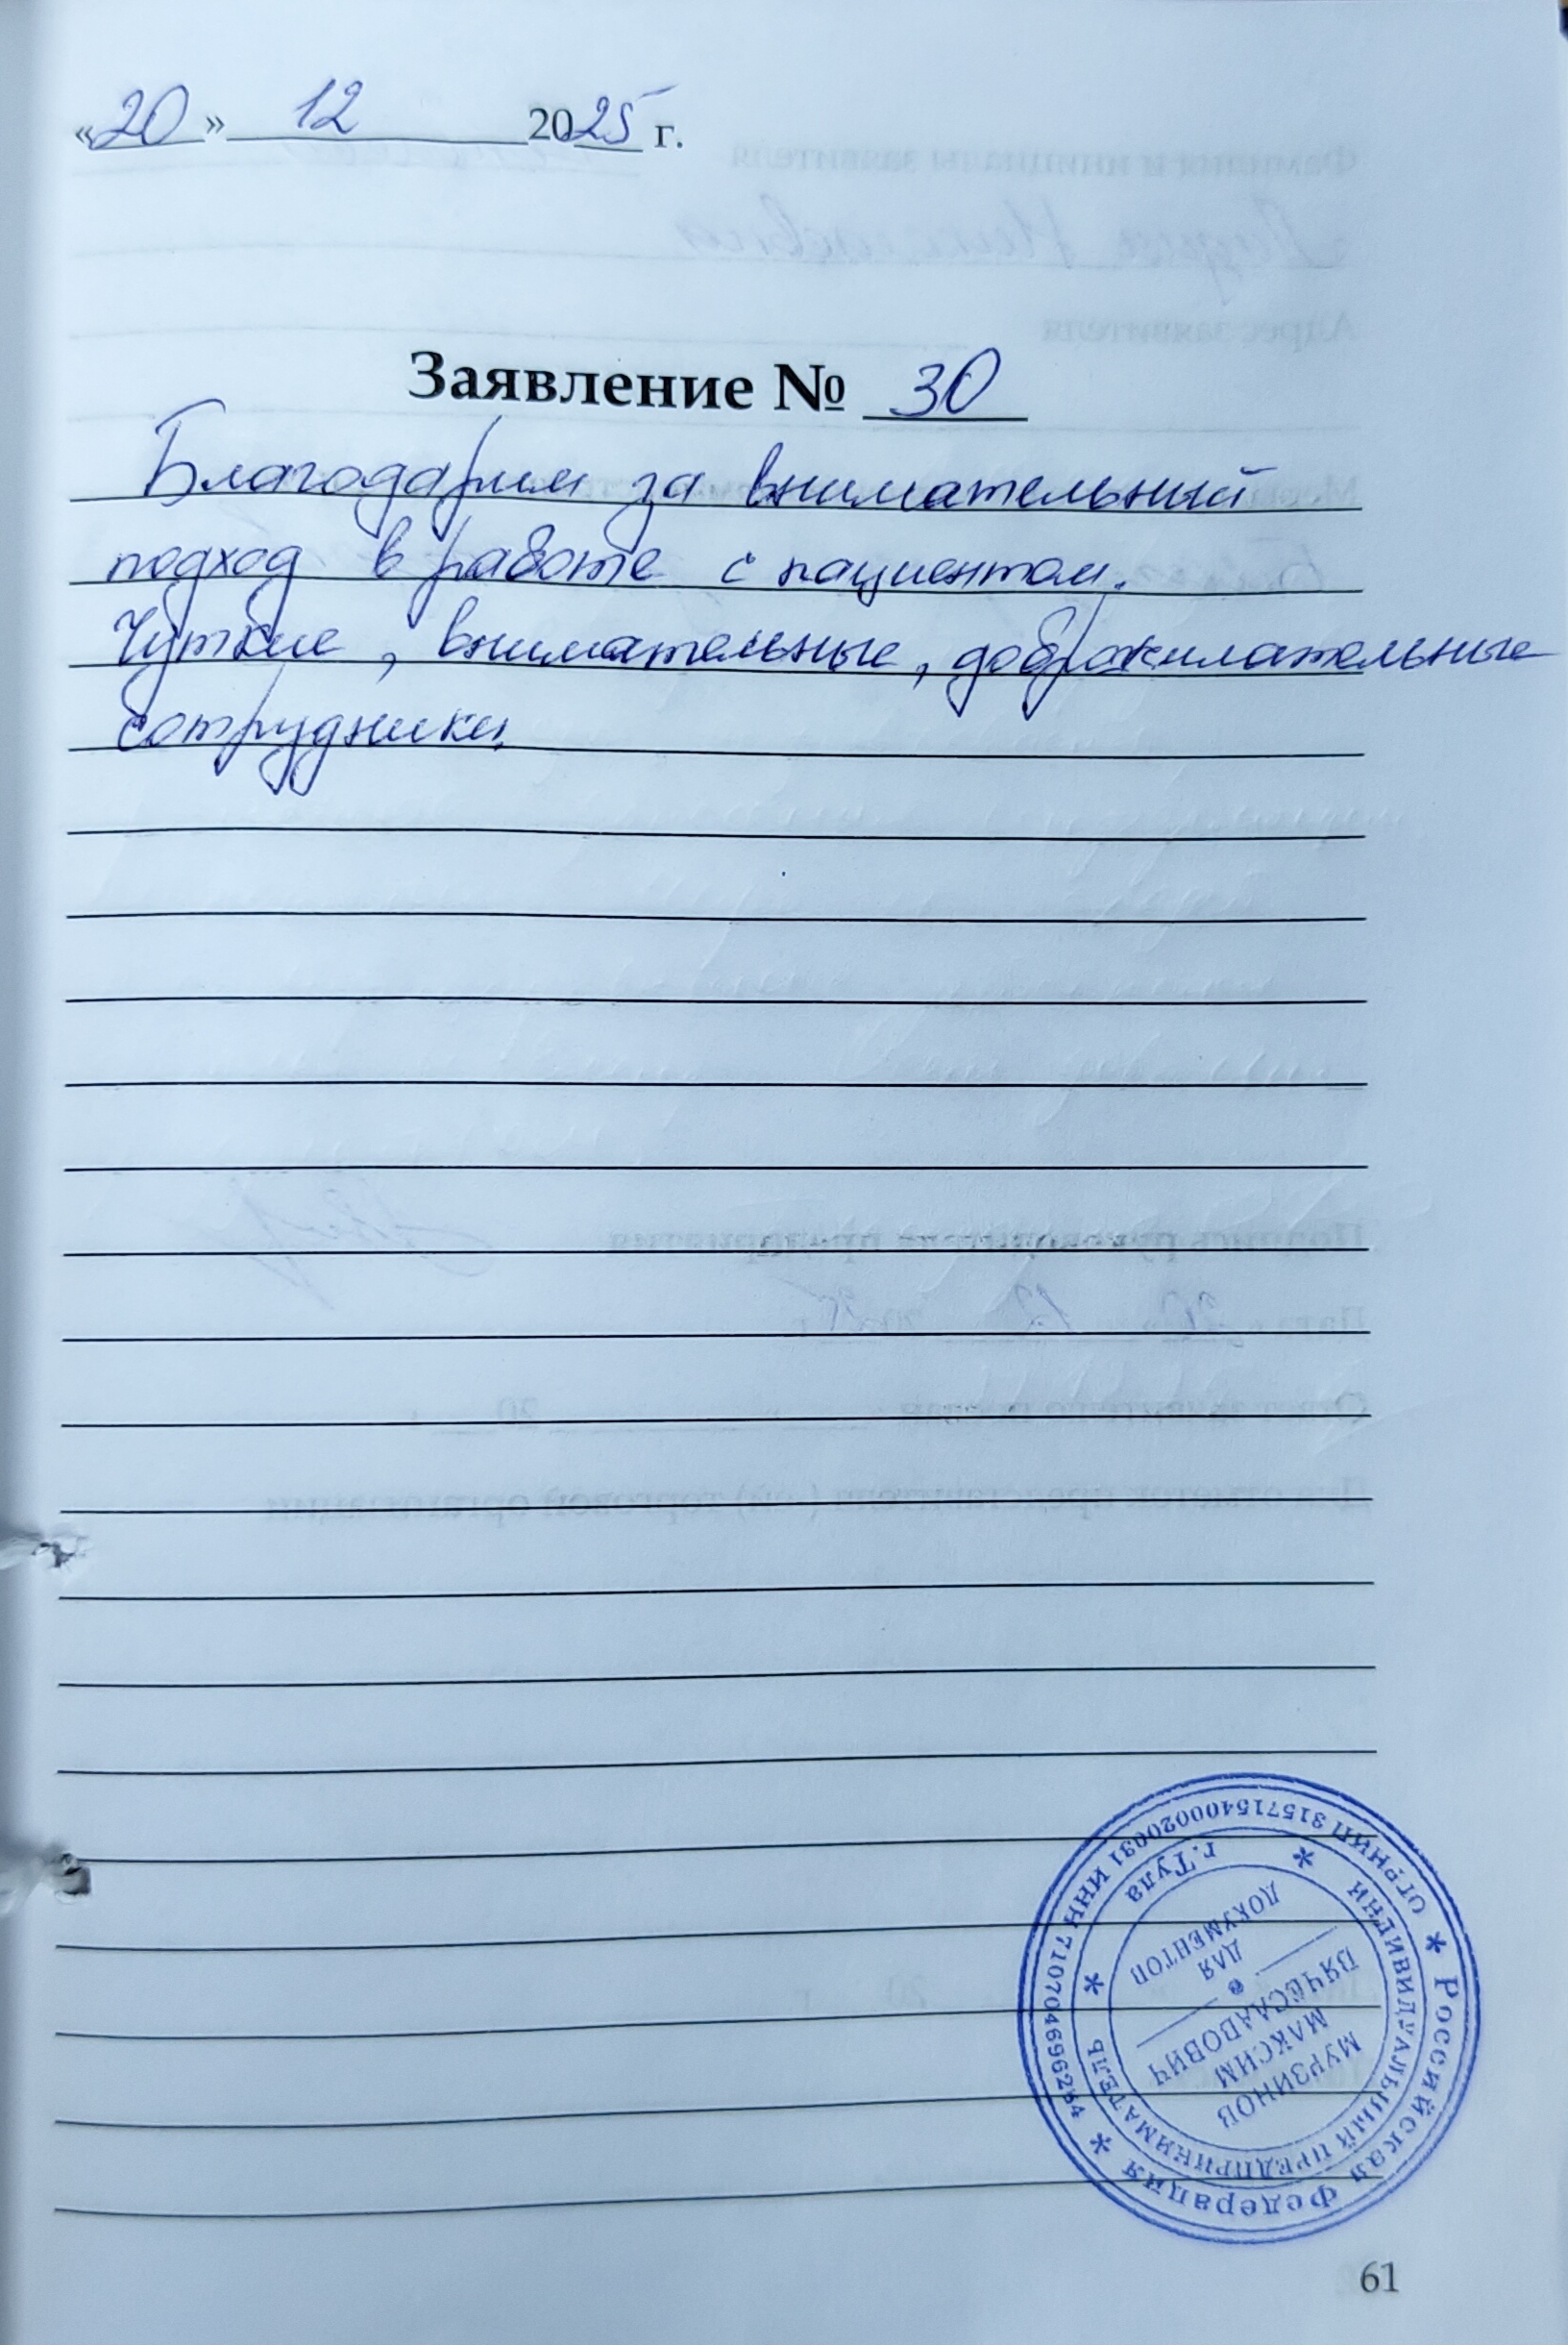 «20» 12 2025 г.
Заявление № 30
Благодарим за внимательный
подход в работе с пациентом.
Чуткие, внимательные, доброжилательные
сотрудники.
* Российская Федерация *
ОГРНИП 315715400020031 ИНН 710704696294
ИНДИВИДУАЛЬНЫЙ ПРЕДПРИНИМАТЕЛЬ
* г.Тула *
МУРЗИНОВ
МАКСИМ
ВЯЧЕСЛАВОВИЧ
ДЛЯ
ДОКУМЕНТОВ
61